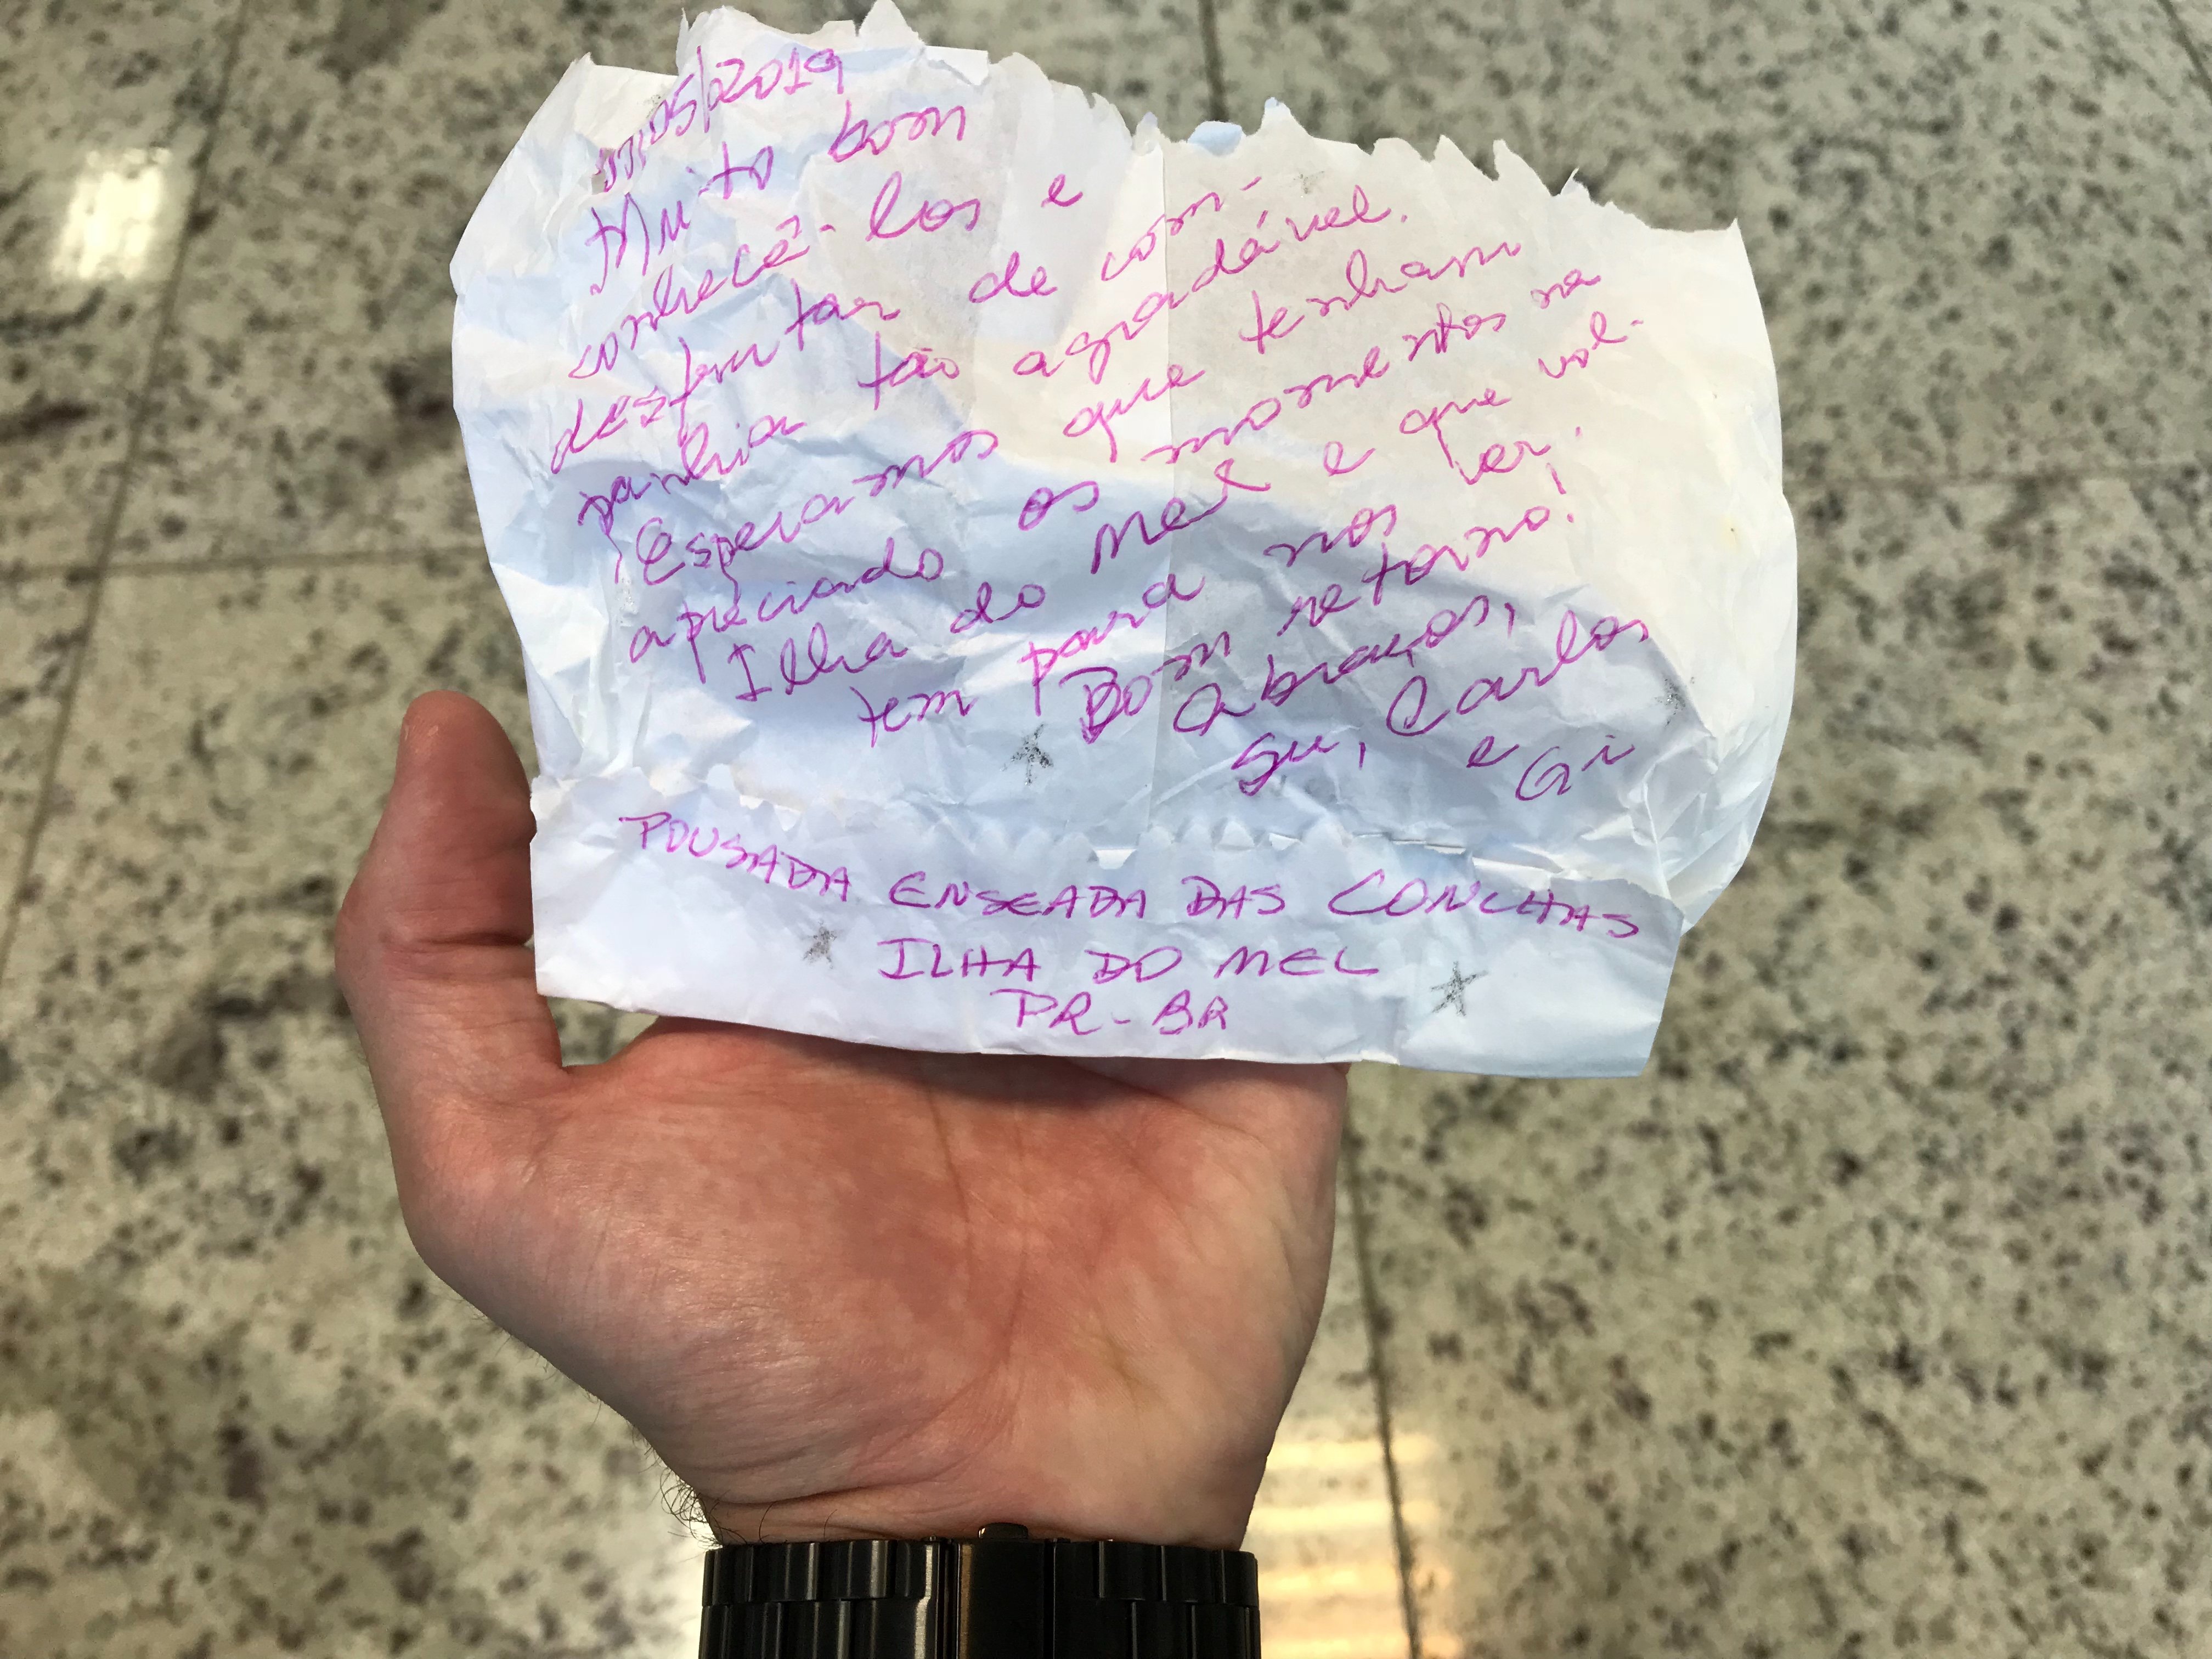 /05/2019
Muito bom
conhecê-los e
desfrutar de com-
panhia tão agradável.
Esperamos que tenham
apreciado os momentos na
Ilha do Mel e que vol-
tem para nos ver.
Bom retorno!
Abraços,
Su, Carlos
e Gi
POUSADA ENSEADA DAS CONCHAS
ILHA DO MEL
PR-BR